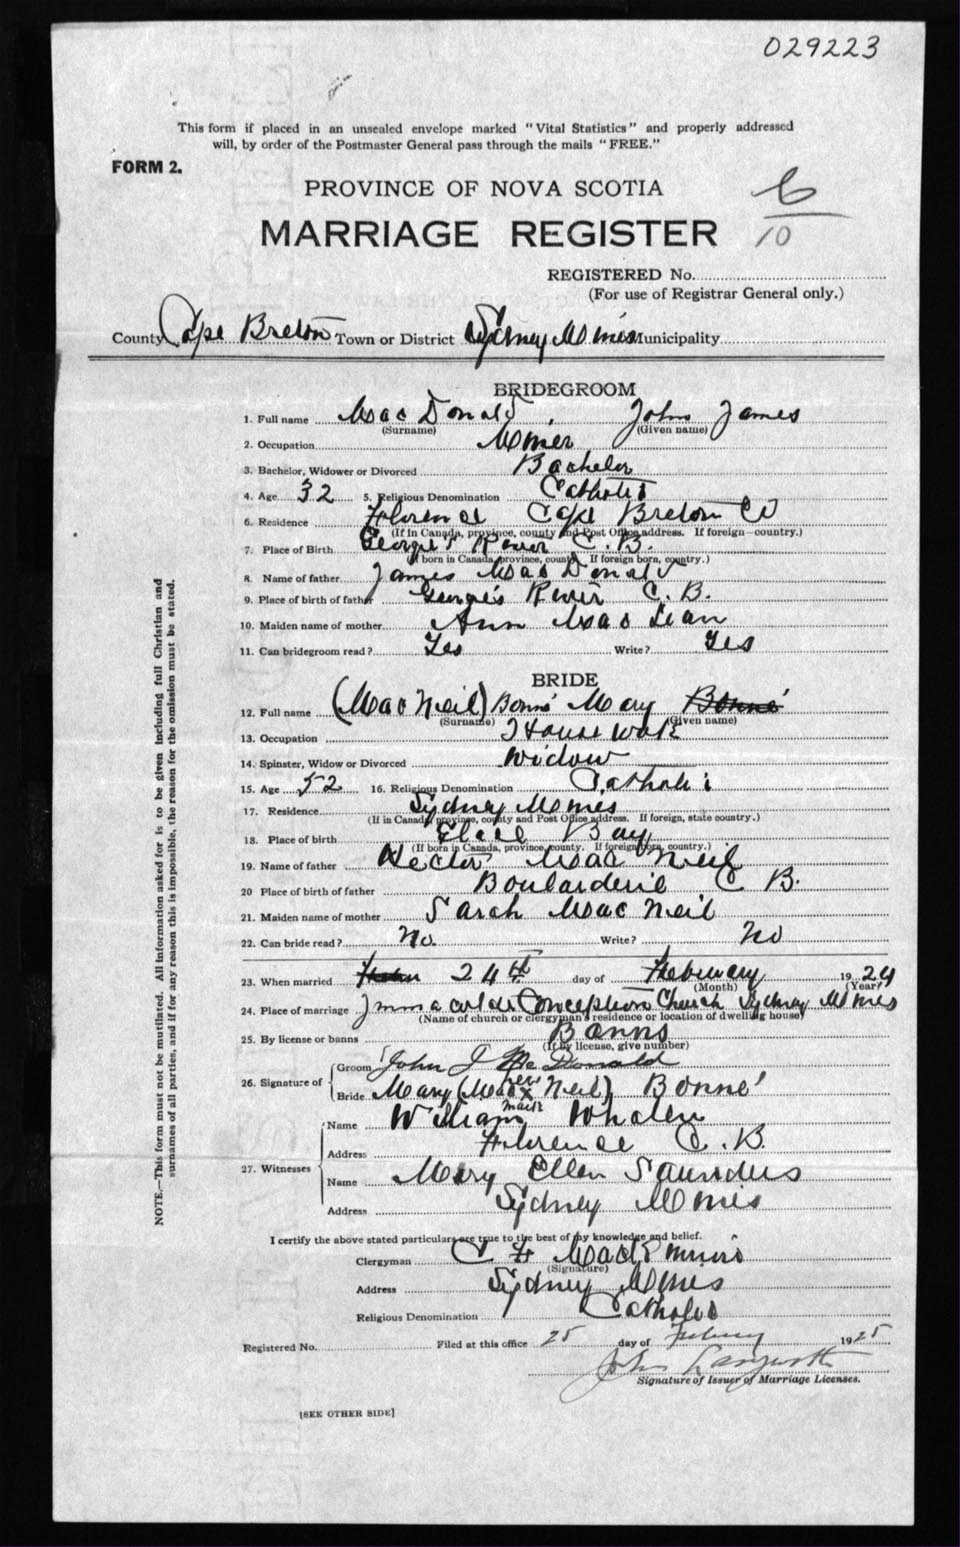 029223
This form if placed in an unsealed envelope marked "Vital Statistics" and properly addressed
will, by order of the Postmaster General pass through the mails "FREE."
FORM 2.
PROVINCE OF NOVA SCOTIA
6
MARRIAGE REGISTER
10
REGISTERED No.
(For use of Registrar General only.)
County Cape Breton Town or District Sydney Mines Municipality
BRIDEGROOM
1. Full name MacDonald, John James
(Surname) (Given name)
2. Occupation Miner
3. Bachelor, Widower or Divorced Bachelor
4. Age 32 5. Religious Denomination Catholic
6. Residence Florence Cape Breton Co
(If in Canada, province, county and Post Office address. If foreign—country.)
7. Place of Birth George's River C. B.
(If born in Canada, province, county. If foreign born, country.)
8. Name of father James MacDonald
9. Place of birth of father George's River C. B.
10. Maiden name of mother Ann MacLean
11. Can bridegroom read? Yes Write? Yes
BRIDE
12. Full name (MacNeil) Bonné Mary Bonné
(Surname) (Given name)
13. Occupation House work
14. Spinster, Widow or Divorced Widow
15. Age 52 16. Religious Denomination Catholic
17. Residence Sydney Mines
(If in Canada, province, county and Post Office address. If foreign, state country.)
18. Place of birth Bay
(If born in Canada, province, county. If foreign born, country.)
19. Name of father Hector MacNeil
20 Place of birth of father Boularderie C B.
21. Maiden name of mother Sarah MacNeil
22. Can bride read? No. Write? No
23. When married 24th day of February 1924
(Month) (Year)
24. Place of marriage Immaculate Conception Church Sydney Mines
(Name of church or clergyman's residence or location of dwelling house)
25. By license or banns Banns
(If by license, give number)
26. Signature of
Groom John J McDonald
her
Bride Mary (Mac x Neil) Bonné
mark
27. Witnesses
Name William Whalen
Address Florence C. B.
Name Mary Ellen Saunders
Address Sydney Mines
I certify the above stated particulars are true to the best of my knowledge and belief.
Clergyman C F MacKinnon
(Signature)
Address Sydney Mines
Religious Denomination Catholic
Registered No. Filed at this office 25 day of February 1925
John
Signature of Issuer of Marriage Licenses.
[SEE OTHER SIDE]
NOTE.—This form must not be mutilated. All information asked for is to be given including full Christian and
surnames of all parties, and if for any reason this is impossible, the reason for the omission must be stated.